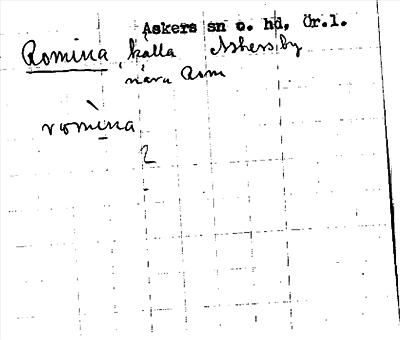 Askers sn o. hd. Ör.l.
Romina, källa Askers by
nära Rom
romìna
2